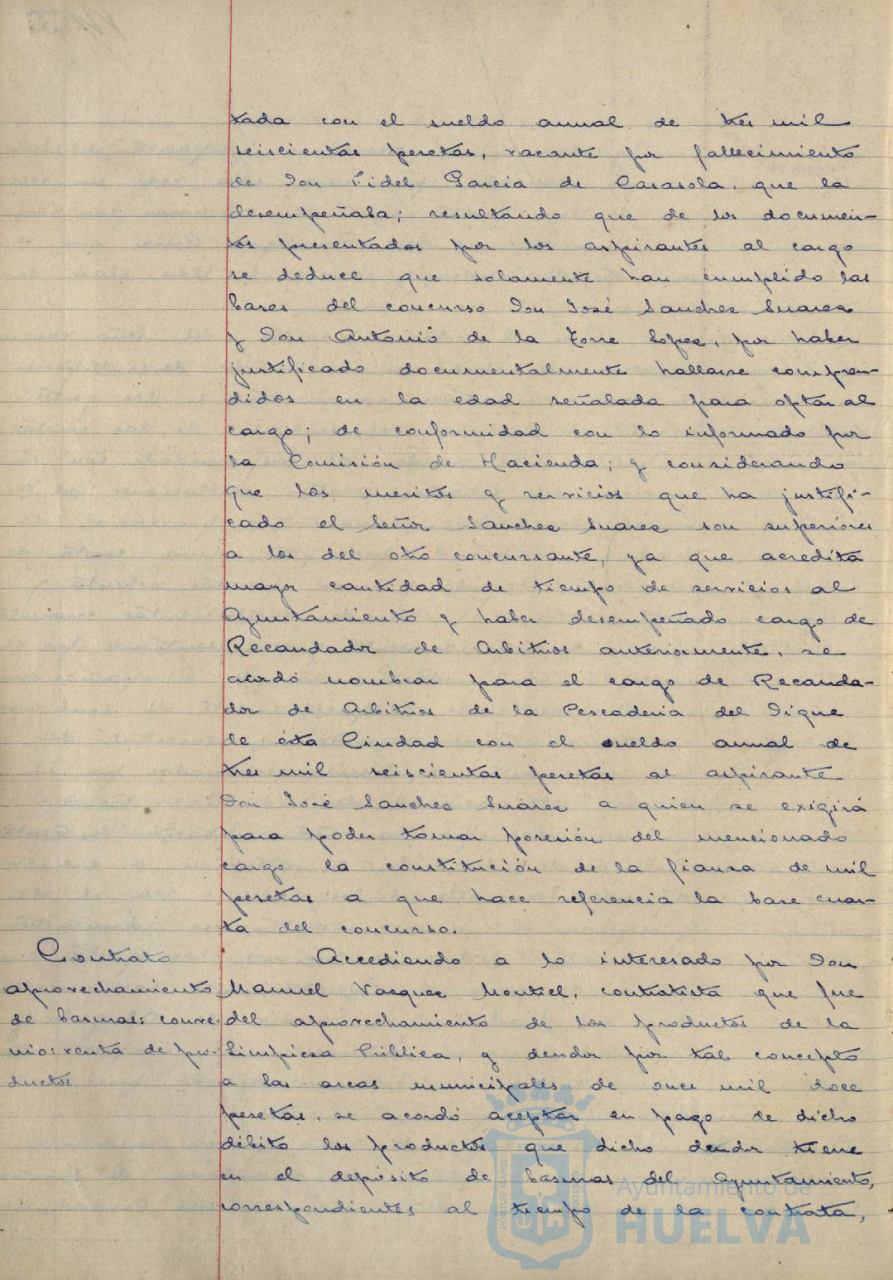 tada con el sueldo anual de tres mil
seiscientas pesetas, vacante por fallecimiento
de Don Fidel Garcia de Casasola, que la
desempeñaba; resultando que de los documen-
tos presentados por los aspirantes al cargo
se deduce que solamente han cumplido las
bases del concurso Don José Sanchez Suarez
y Don Antonio de la Torre Lopez, por haber
justificado documentalmente hallarse compren-
didos en la edad señalada para optar al
cargo; de conformidad con lo informado por
la Comisión de Hacienda; y considerando
que los meritos y servicios que ha justifi-
cado el Señor Sanchez Suarez son superiores
a los del otro concursante, ya que acredita
mayor cantidad de tiempo de servicios al
Ayuntamiento y haber desempeñado cargo de
Recaudador de Arbitrios anteriormente, se
acordó nombrar para el cargo de Recauda-
dor de Arbitrios de la Pescaderia del Dique
de ésta Ciudad con el sueldo anual de
tres mil seiscientas pesetas al aspirante
Don José Sanchez Suárez a quien se exigirá
para poder tomar posesión del mencionado
cargo la constitución de la fianza de mil
pesetas a que hace referencia la base cuar-
ta del concurso.
Contrato
aprovechamiento
de basuras: conve-
nio: venta de pro-
ductos
Accediendo a lo interesado por Don
Manuel Vasquez Montiel, contratista que fue
del aprovechamiento de los productos de la
Limpieza Pública, y deudor por tal concepto
a las arcas municipales de once mil doce
pesetas, se acordó aceptar en pago de dicho
débito los productos que dicho deudor tiene
en el depósito de basuras del Ayuntamiento,
correspondientes al tiempo de la contrata,
Ayuntamiento de
HUELVA